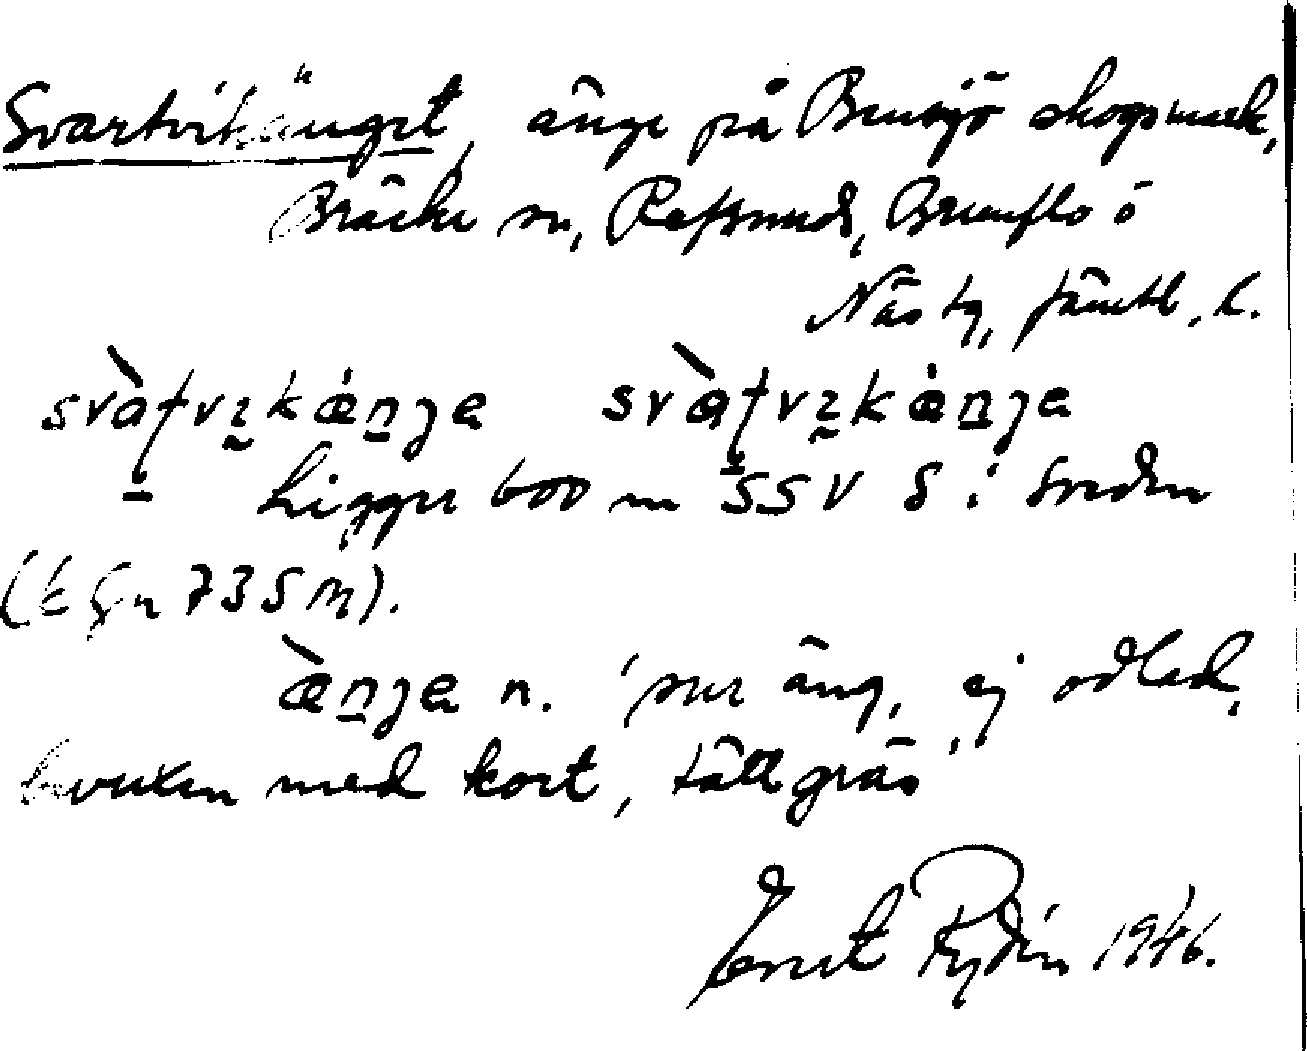 Svartvikänget, änge på Bensjö skogsmark,
Bräcke sn, Refsunds, Brunflo o
Näs tg, Jämtl. l.
svàṭvi̬kǽnje svàṭvi̬kǽnje
Ligger 600 m SSV S i Sveden
(E Gn 735 m).
æ̀nje n. 'sur äng, ej odlad,
bevuxen med kort, tätt gräs'
Ernst Rydén 1946.